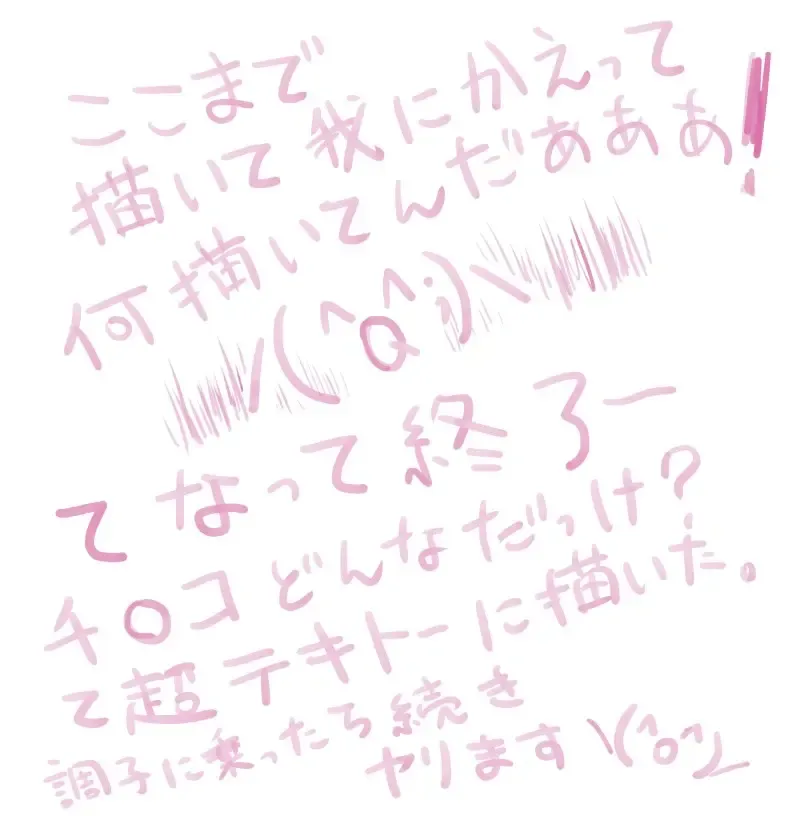 ここまで
描いて我にかえって
何描いてんだぁあああ!!
/(^Q^;)\
てなって終了ー
チ○コどんなだっけ?
て超テキトーに描いた。
調子に乗ったら続き
ヤリます\(^o^)_